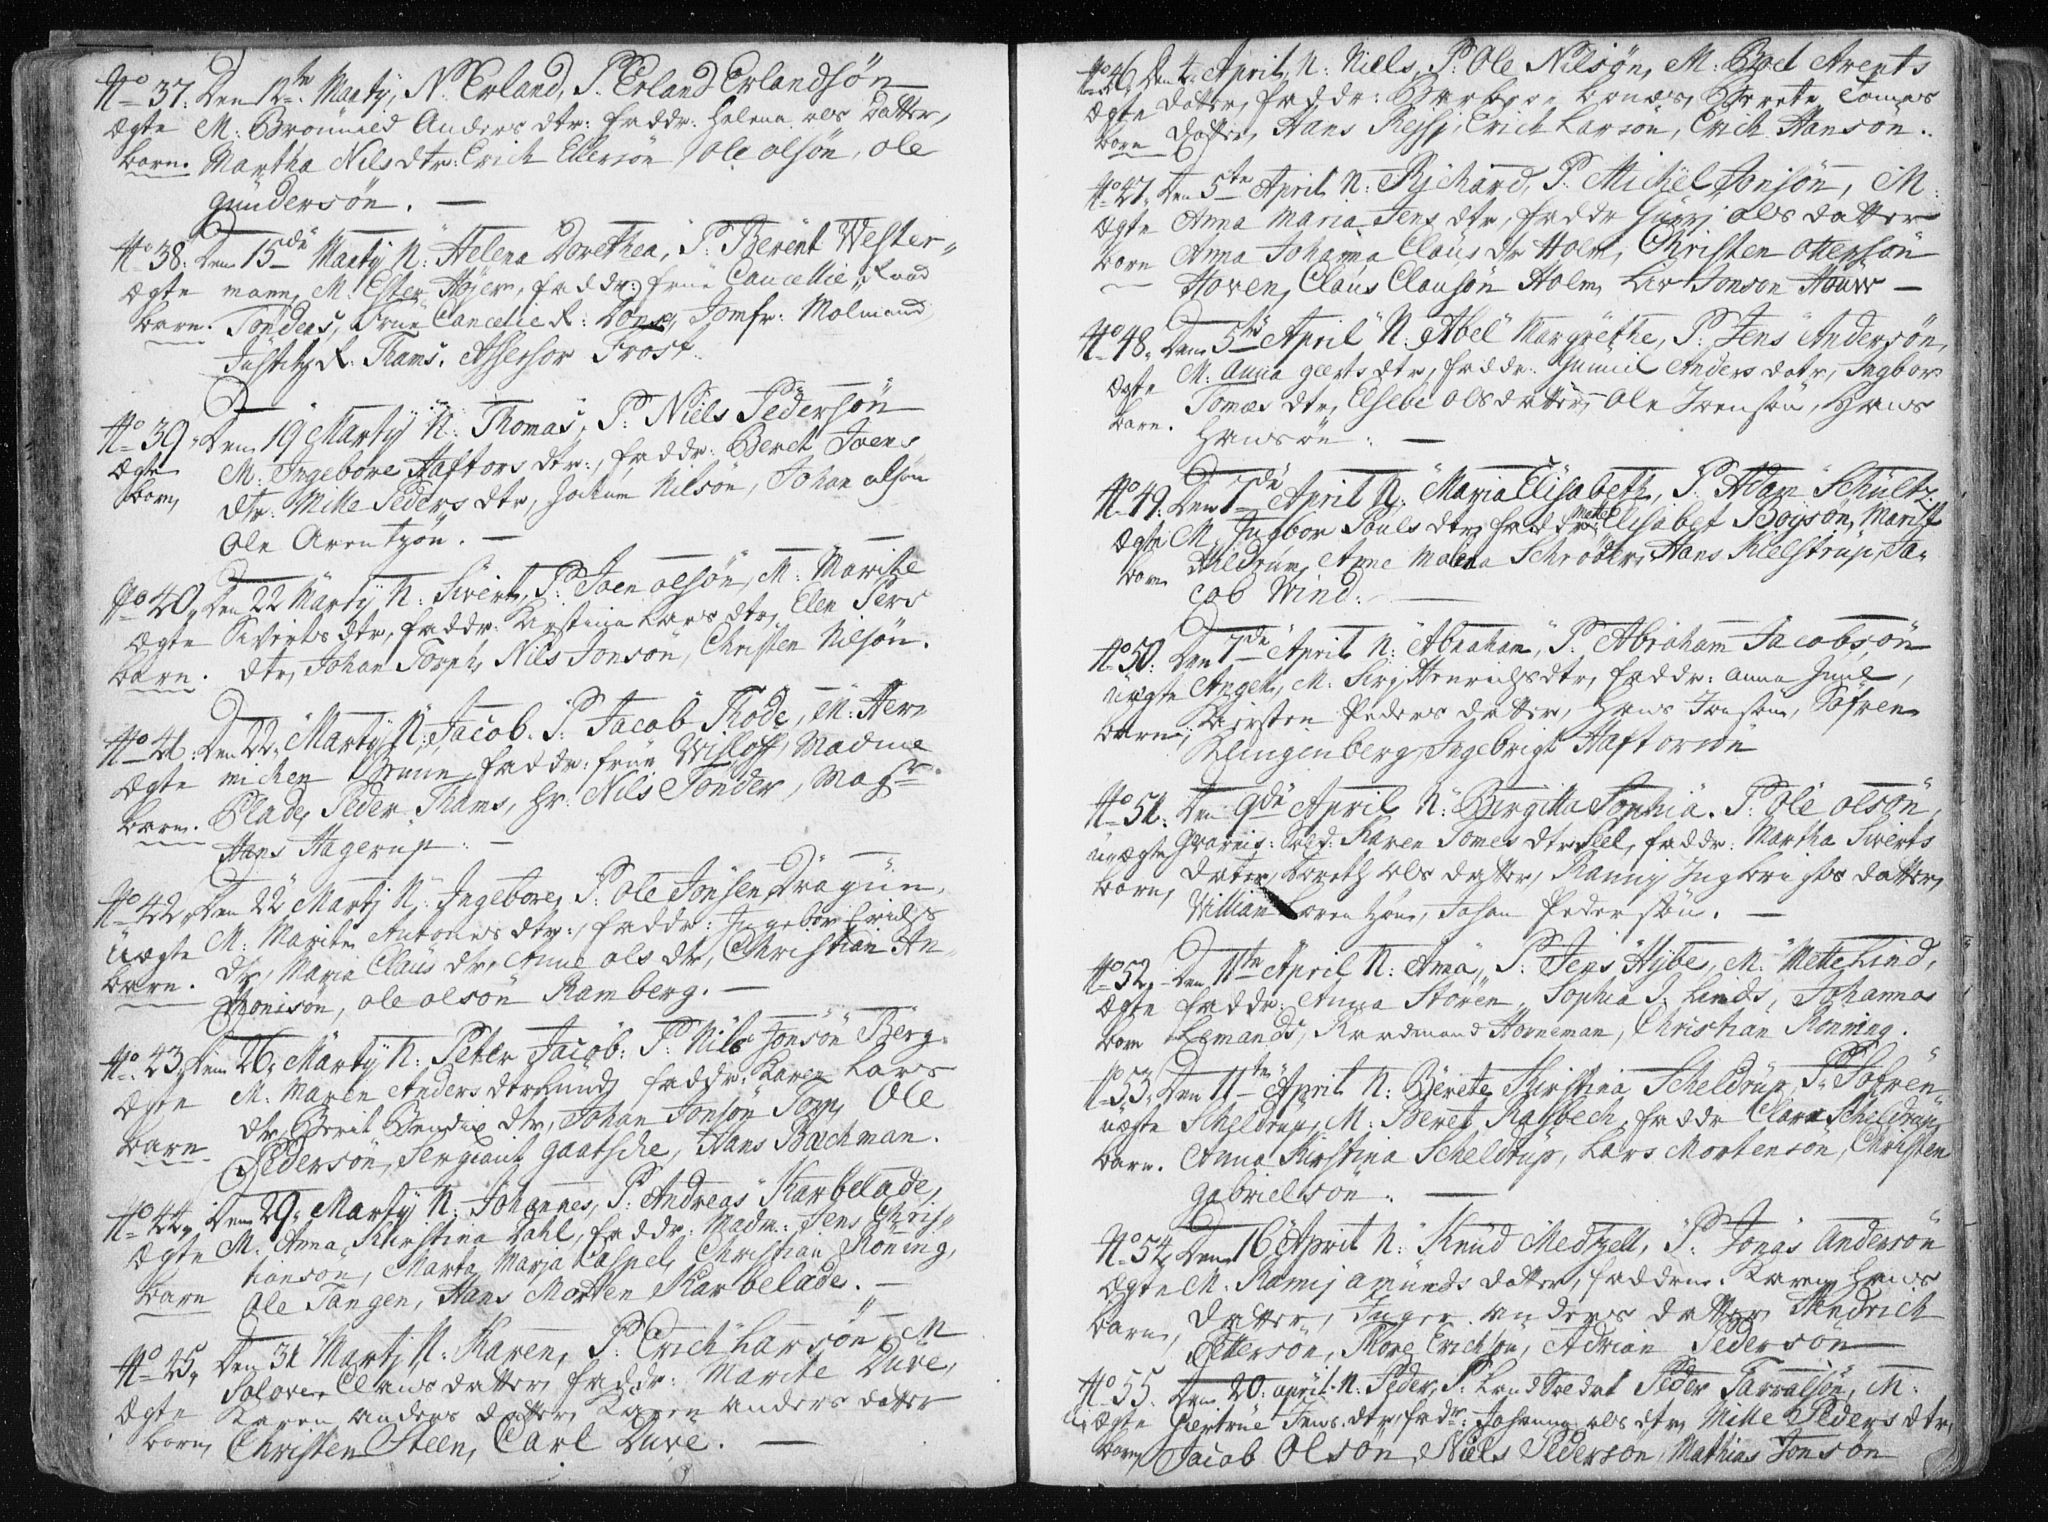 No 37. Den 12te Martÿ, N. Erland, P. Erland Erlandsøn
Ægte M: Anders dtr: faddr: Helena ols Datter,
barn. Martha Nils dtr: Erich Ellersøn, Ole olsøn, ole
gundersøn. —
No 38. Den 15de Martÿ N: Helena Dorethea, P: Berent Wester„
Ægte mann, M. Ester Høyer, faddr: frue Cancellie Raad
barn. Tønders, Frue Cancelie R: Jomfr: Molmand
Justitz R. Thams, Assessor Frost.
No 39. Den 19 Martÿ N: Thomas, P: Niels Pedersøn
Ægte M. Ingebore Haftors dtr:, faddr: Beret Joens
barn, dtr: Mille Peders dtr, Nilsøn, Johan olsøn
Ole Arentzøn. —
No 40. Den 22 Martÿ N: Sivert, P: Joen olsøn, M: Marite
Ægte Siverts dtr, faddr: Kirstina Lars dtr, Elen Pers
barn. dtr, Johan Torp, Nils Jonsøn, Christen Nilsøn.
No 41. Den 22. Martÿ N: Jacob. P: Jacob Rode, M: Her„
Ægte michen Brun, faddr: frue Wisloff, Madme
barn. Blade, Peder Thams, Hr: Nils Tønder, Magr
Hans Hagerup. —
No 42. Den 22 Martj N: Ingebore, P: Ole Jonsen Dragun,
Uægte M: Marite Antonis dtr:, faddr: Ingebor Erichs
barn. dtr, Maria Claus dtr, Anne ols dtr, Christian An„
thonisøn, ole olsøn Ramberg. —
No 43. Den 26. Martÿ N: Peter Jacob: P: Nils Jonsøn Berg.
Ægte M. Maren Anders dtr Lund, faddr: Karen Lars
barn dtr, Berit Bendix dtr, Johan Jonsøn Torp, Ole
Pedersøn, Sergiant Gaatsche, Hans Bachman.
No 44. Den 29. Martÿ N: Johannes, P: Andreas Karbelade,
Ægte M: Anna Kirstina Dahl, faddr: Madm: Jens Chris„
barn tianson, Marta Maria Caspel, Christian Røning,
Ole Tangen, Hans Morten Karbelade. —
No 45. Den 31 Martj N: Karen, P: Erich Larsøn, M
Ægte Solove Claus datter, faddr: Marite Duve,
barn, Karen Anders datter, Karen anders datter
Christen Steen, Carl Duve. —
No 46. Den 2. April, N: Niels, P: Ole Nilsøn, M: Boel Arents
Ægte Datter, faddr: Barbara Berete Tomas
barn Datter, Hans Erich Larsøn, Erich Hansøn.
No 47. Den 5te April N: Richard, P: Michel Jonsøn, M:
Ægte Anna Maria Jens dtr, faddr Gurj ols datter
barn Anna Johanna Claus dr Holm, Christen ottersøn
Hoven, Claus Clausøn Holm, Lar Jonson —
No 48. Den 5te April N: Abel Margrethe, P: Jens Andersøn,
Ægte M: Anna geerts dtr, faddr: Gunnil Anders datr, Ingbor
barn. Tomæs dtr, Elsebe ols datter, Ole Joensøn, Hans
Hansøn. —
No 49. Den 7de April N: Maria Elisabeth, P: Adam Schultz.
Ægte M. Ingbor Pauls dtr, faddr: Mette Elisabet Boyson, Marith
barn Hildrum, Anne Malena Schrøder, Hans Klelstrup, Ja„
cob Wind. —
No 50. Den 7de April N: Abraham, P: Abraham Jacobsøn
uægte Angel, M: Siri Henrichs dtr, faddr: Anna Juul,
barn, Kirsten Peders datter, Hans Jensøn, Søfren
Klingenberg, Ingebrigt Haftorsøn
No 51. Den 9de April N: Bergitta Sophia. P: Ole olsøn
uægte Gvarnis: Sold: Karen Tomes dtr Leel, faddr: Martha Siverts
barn, Dater, Bereth ols datter, Ranny Ingbrigts datter,
Willian Johan Pedersøn. —
No 52. Den 11te April N: Anna, P: Jens Hÿbe, M: Mette Lind,
Ægte faddr: Anna Støren, Sophia S. Linds, Johanna
barn Lemands, Raadmand Horneman, Christian Rønning.
No 53. Den 11te April N: Berete Kirstina Scheldrup, P: Søfren
uægte Scheldrup, M: Beret Rasbech, faddr Clara Scheldrup,
barn. Anna Kirstina Scheldrup, Lars Mortenson, Christen
Gabrielsøn. —
No 54. Den 16 April N: Knud Metzell, P: Jonas Andersøn
Ægte M: Ramij Amunds datter, faddere. Karen Hans
barn, Datter, Inger anders datter, Hendrich
Ottersøn, Tore Erichsøn, Adrian Pederson
No 55. Den 20. april. N: Peder, P: Land Soldat Peder Tarralsøn, M:
u, Ægte Giertrue Jens dtr, fadr: Johanna ols dtr, Mille Peders dtr,
barn, Jacob Olson, Niels Pederson, Mathias Jonson